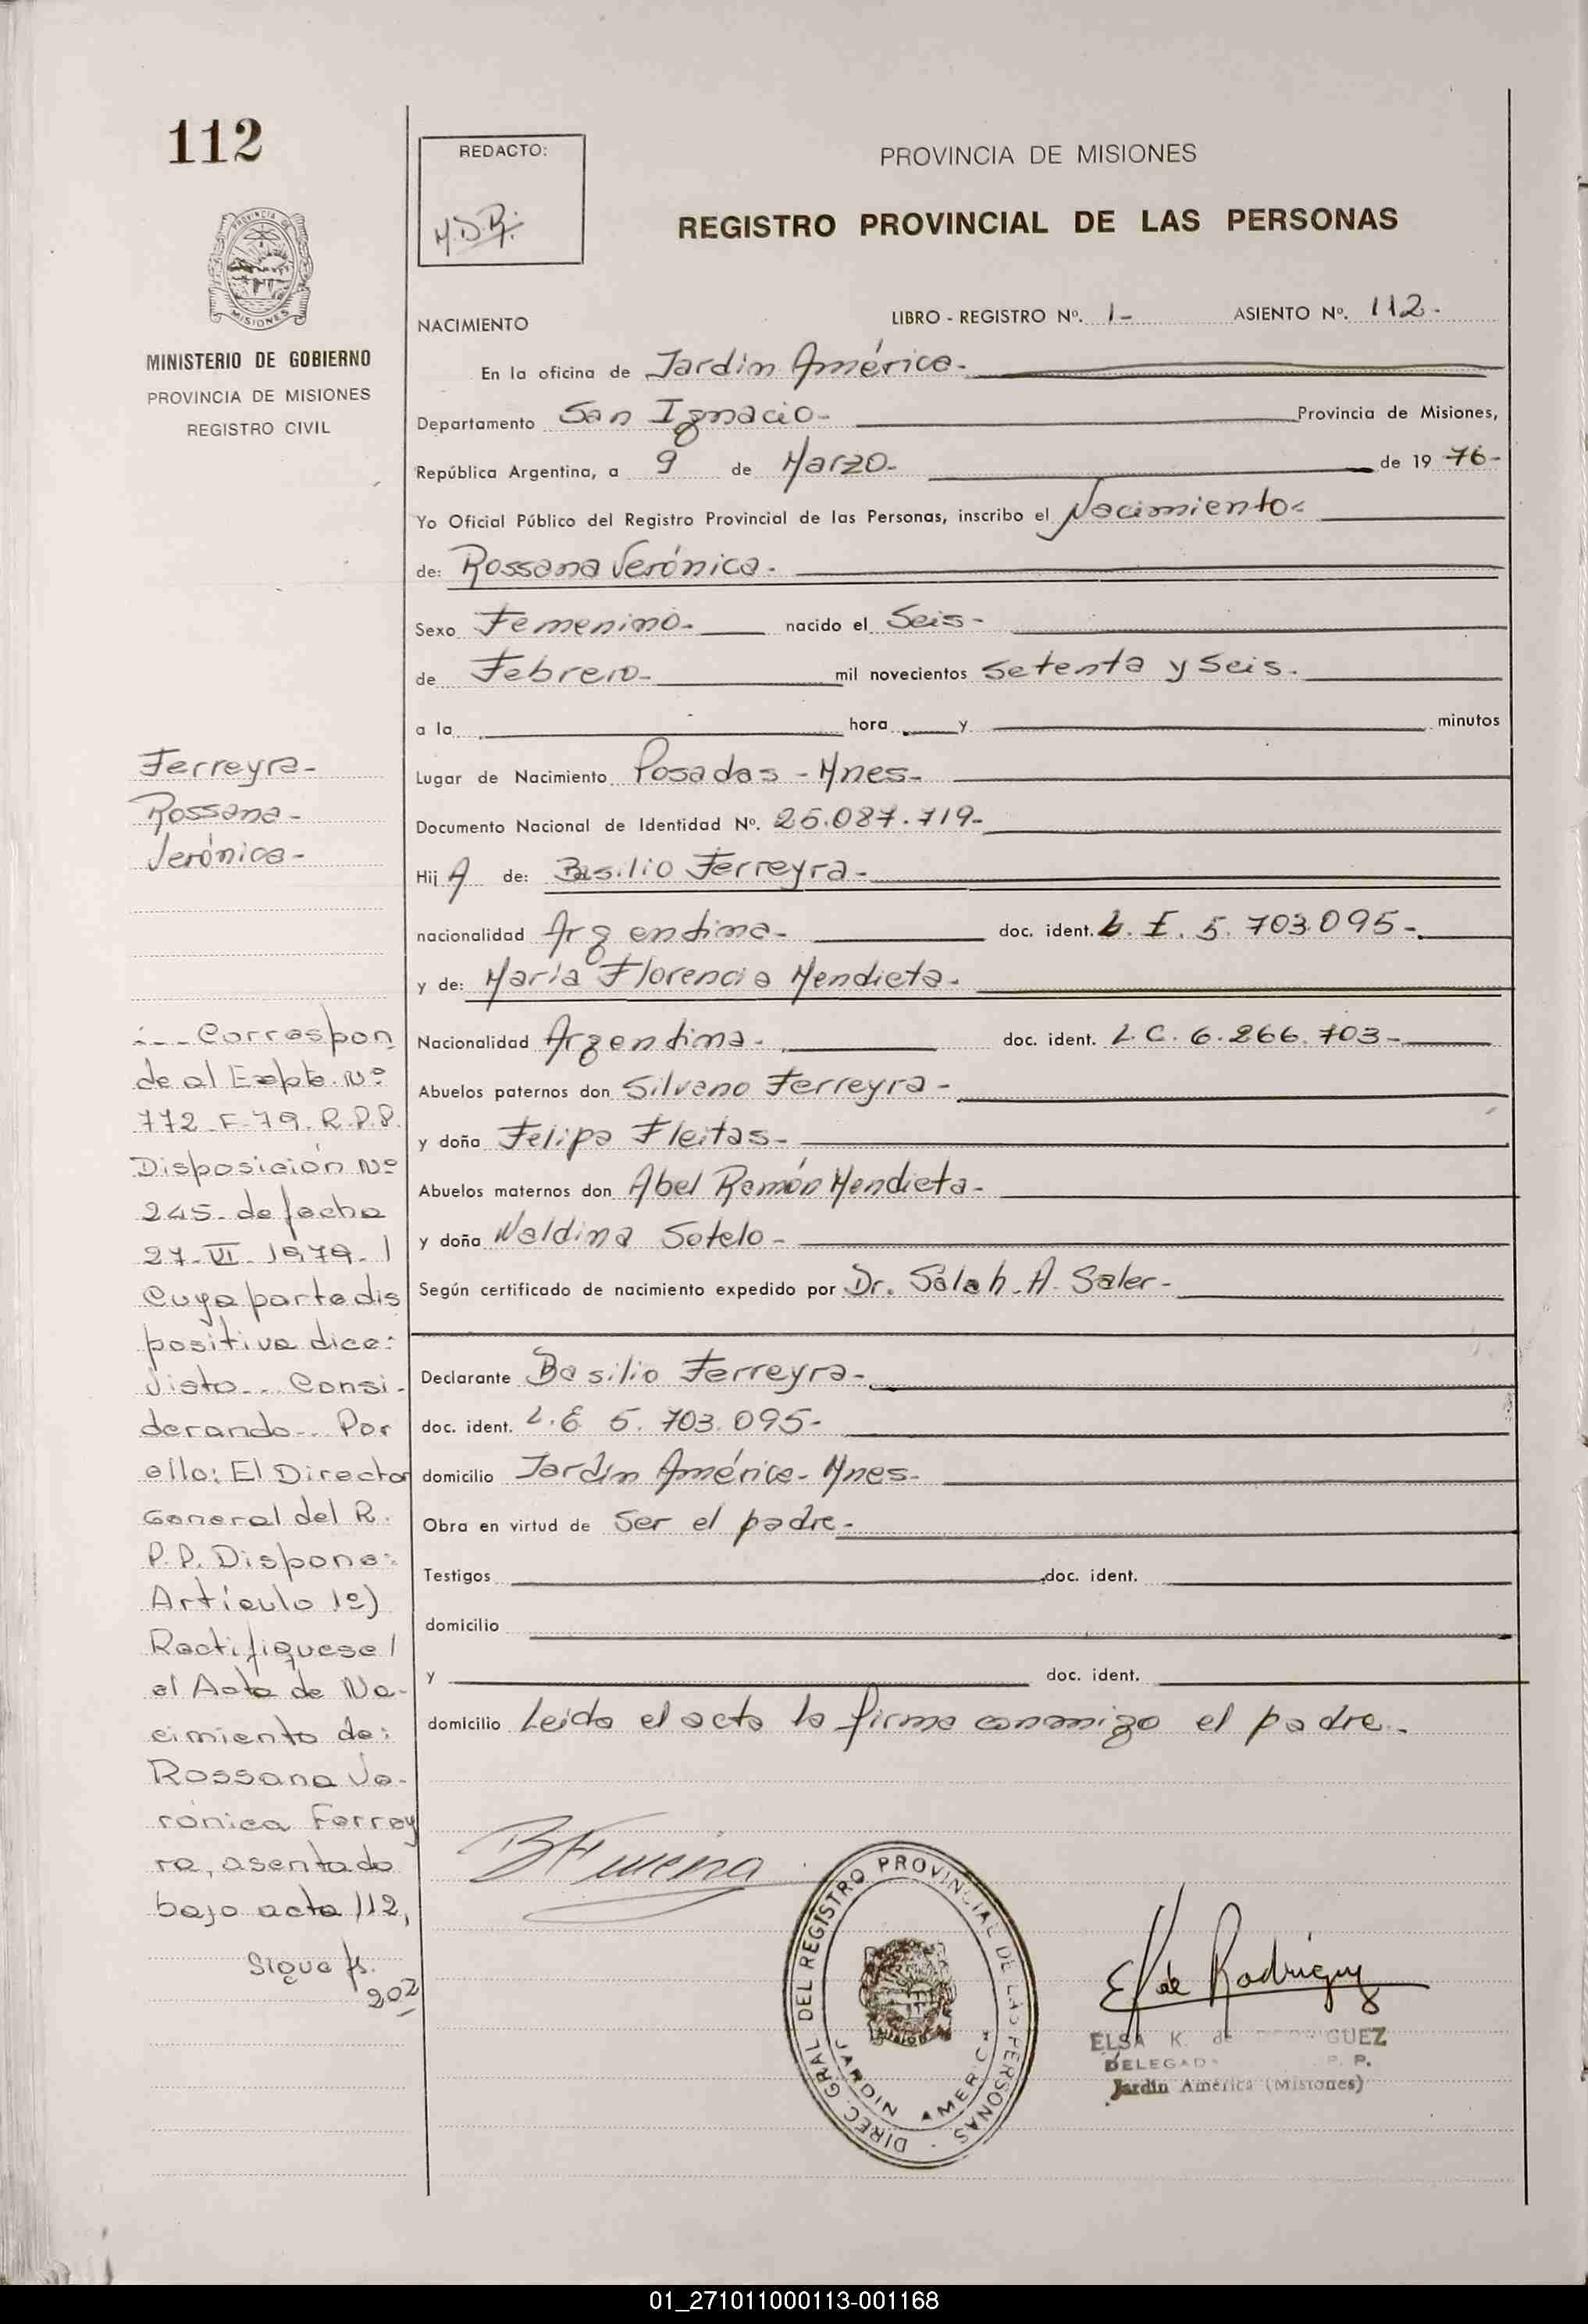 112
REDACTO:
PROVINCIA DE MISIONES
REGISTRO PROVINCIAL DE LAS PERSONAS
MISIONES
MINISTERIO DE GOBIERNO
PROVINCIA DE MISIONES
REGISTRO CIVIL
NACIMIENTO LIBRO - REGISTRO Nº. 1- ASIENTO Nº. 112-
En la oficina de Jardin América-
Departamento San Ignacio- Provincia de Misiones,
República Argentina, a 9 de Marzo- de 19 76-
Yo Oficial Público del Registro Provincial de las Personas, inscribo el Nacimiento-
de: Rossana Verónica-
Sexo Femenino- nacido el Seis-
de Febrero- mil novecientos setenta y seis.
a la hora y minutos
Lugar de Nacimiento Posadas - Mnes-
Documento Nacional de Identidad Nº. 25.087.719-
Hij A de: Basilio Ferreyra-
nacionalidad Argentina- doc. ident. L. E. 5. 703.095-
y de: María Florencia Mendieta-
Nacionalidad Argentina- doc. ident. L.C. 6.266.703-
Abuelos paternos don Silvano Ferreyra-
y doña Felipa Fleitas-
Abuelos maternos don Abel Ramón Mendieta-
y doña Waldina Sotelo-
Según certificado de nacimiento expedido por Dr. Salah. A. Saler-
Declarante Basilio Ferreyra-
doc. ident. L.E 5. 703.095-
domicilio Jardin América- Mnes-
Obra en virtud de ser el padre-
Testigos doc. ident.
domicilio
y doc. ident.
domicilio Leida el acta la firma conmigo el padre.-
Ferreyra-
Rossana-
Verónica-
Correspon
de al Expte. Nº
772-F-79. R.P.P.
Disposición Nº
245- de fecha
27-VI-1979-/
Cuya parte dis
positiva dice:
Visto... Consi-
derando... Por
ello: El Director
General del R.
P.P. Dispone:
Artículo 1º)
Rectifiquese/
el Acta de Na-
cimiento de:
Rossana Ve-
rónica Ferrey
ra, asentada
bajo acta 112,
Sigue fs.
202
DIREC. GRAL DEL REGISTRO PROVINCIAL DE LAS PERSONAS
JARDIN AMERICA
E K de Rodriguez
ELSA K. de RODRIGUEZ
DELEGADA P. P.
Jardin America (Misiones)
01_271011000113-001168